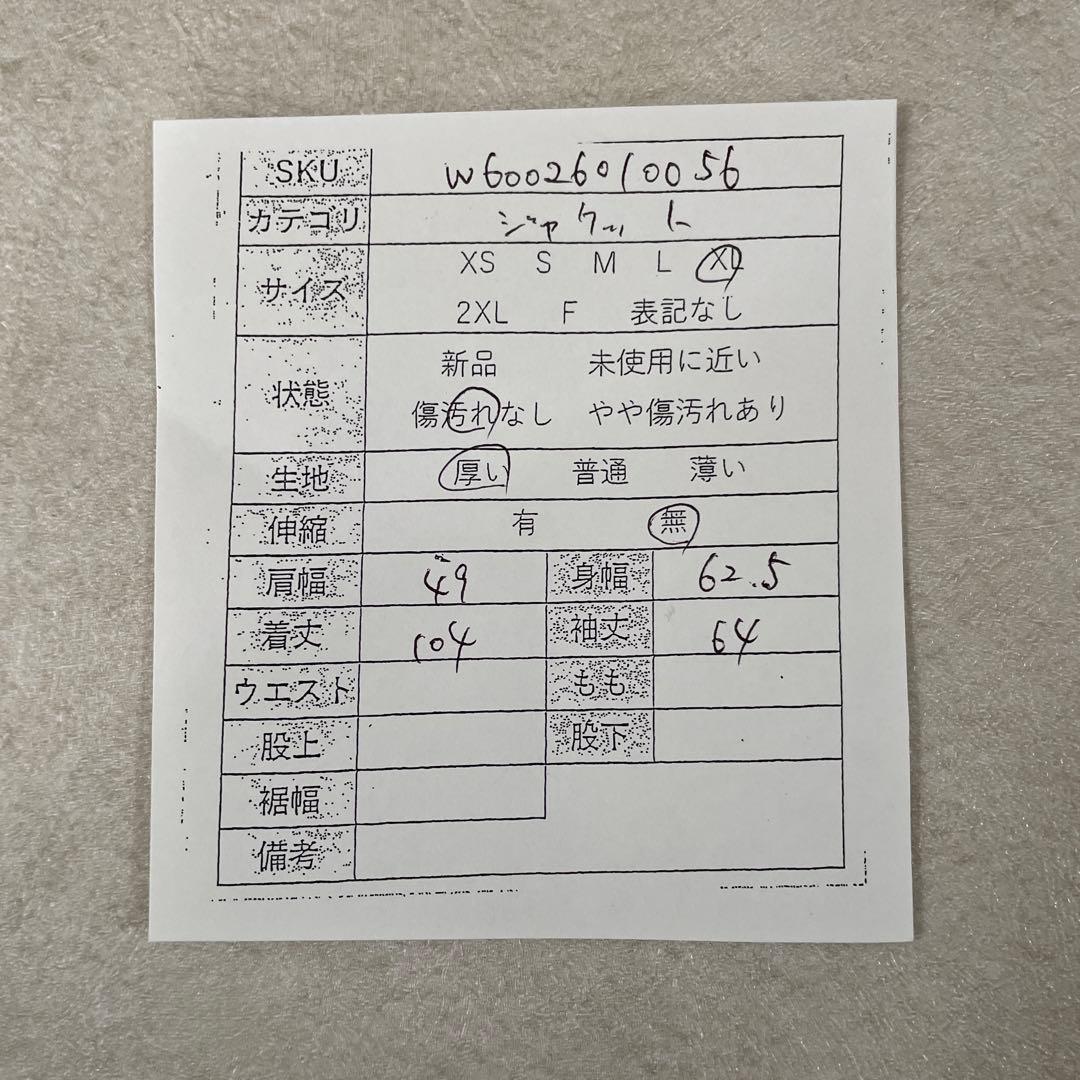 SKU W60026010056
カテゴリ ジャケット
サイズ XS S M L XL
2XL F 表記なし
状態 新品 未使用に近い
傷汚れなし やや傷汚れあり
生地 厚い 普通 薄い
伸縮 有 無
肩幅 49 身幅 62.5
着丈 104 袖丈 64
ウエスト もも
股上 股下
裾幅
備考